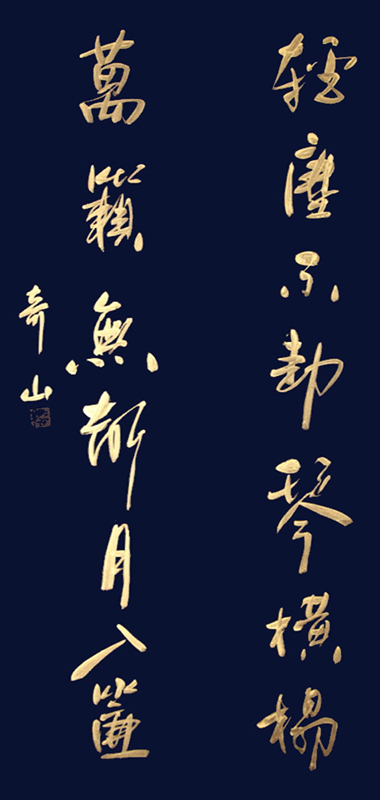 輕塵不動琴橫榻
萬籟無聲月入簾
奇山